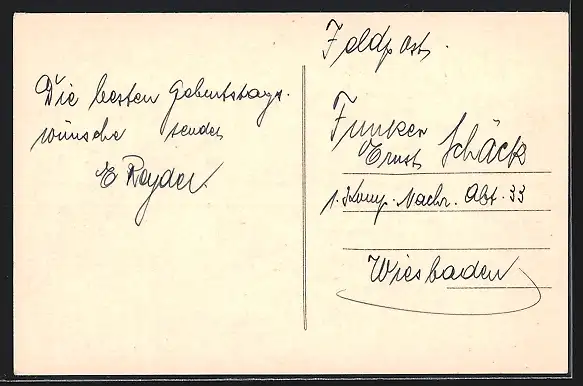 Die besten Geburtstags-
wünsche sendet
E
Feldpost.
Funker
Ernst Schäck
1. Komp. Nachr. Abt. 33
Wiesbaden